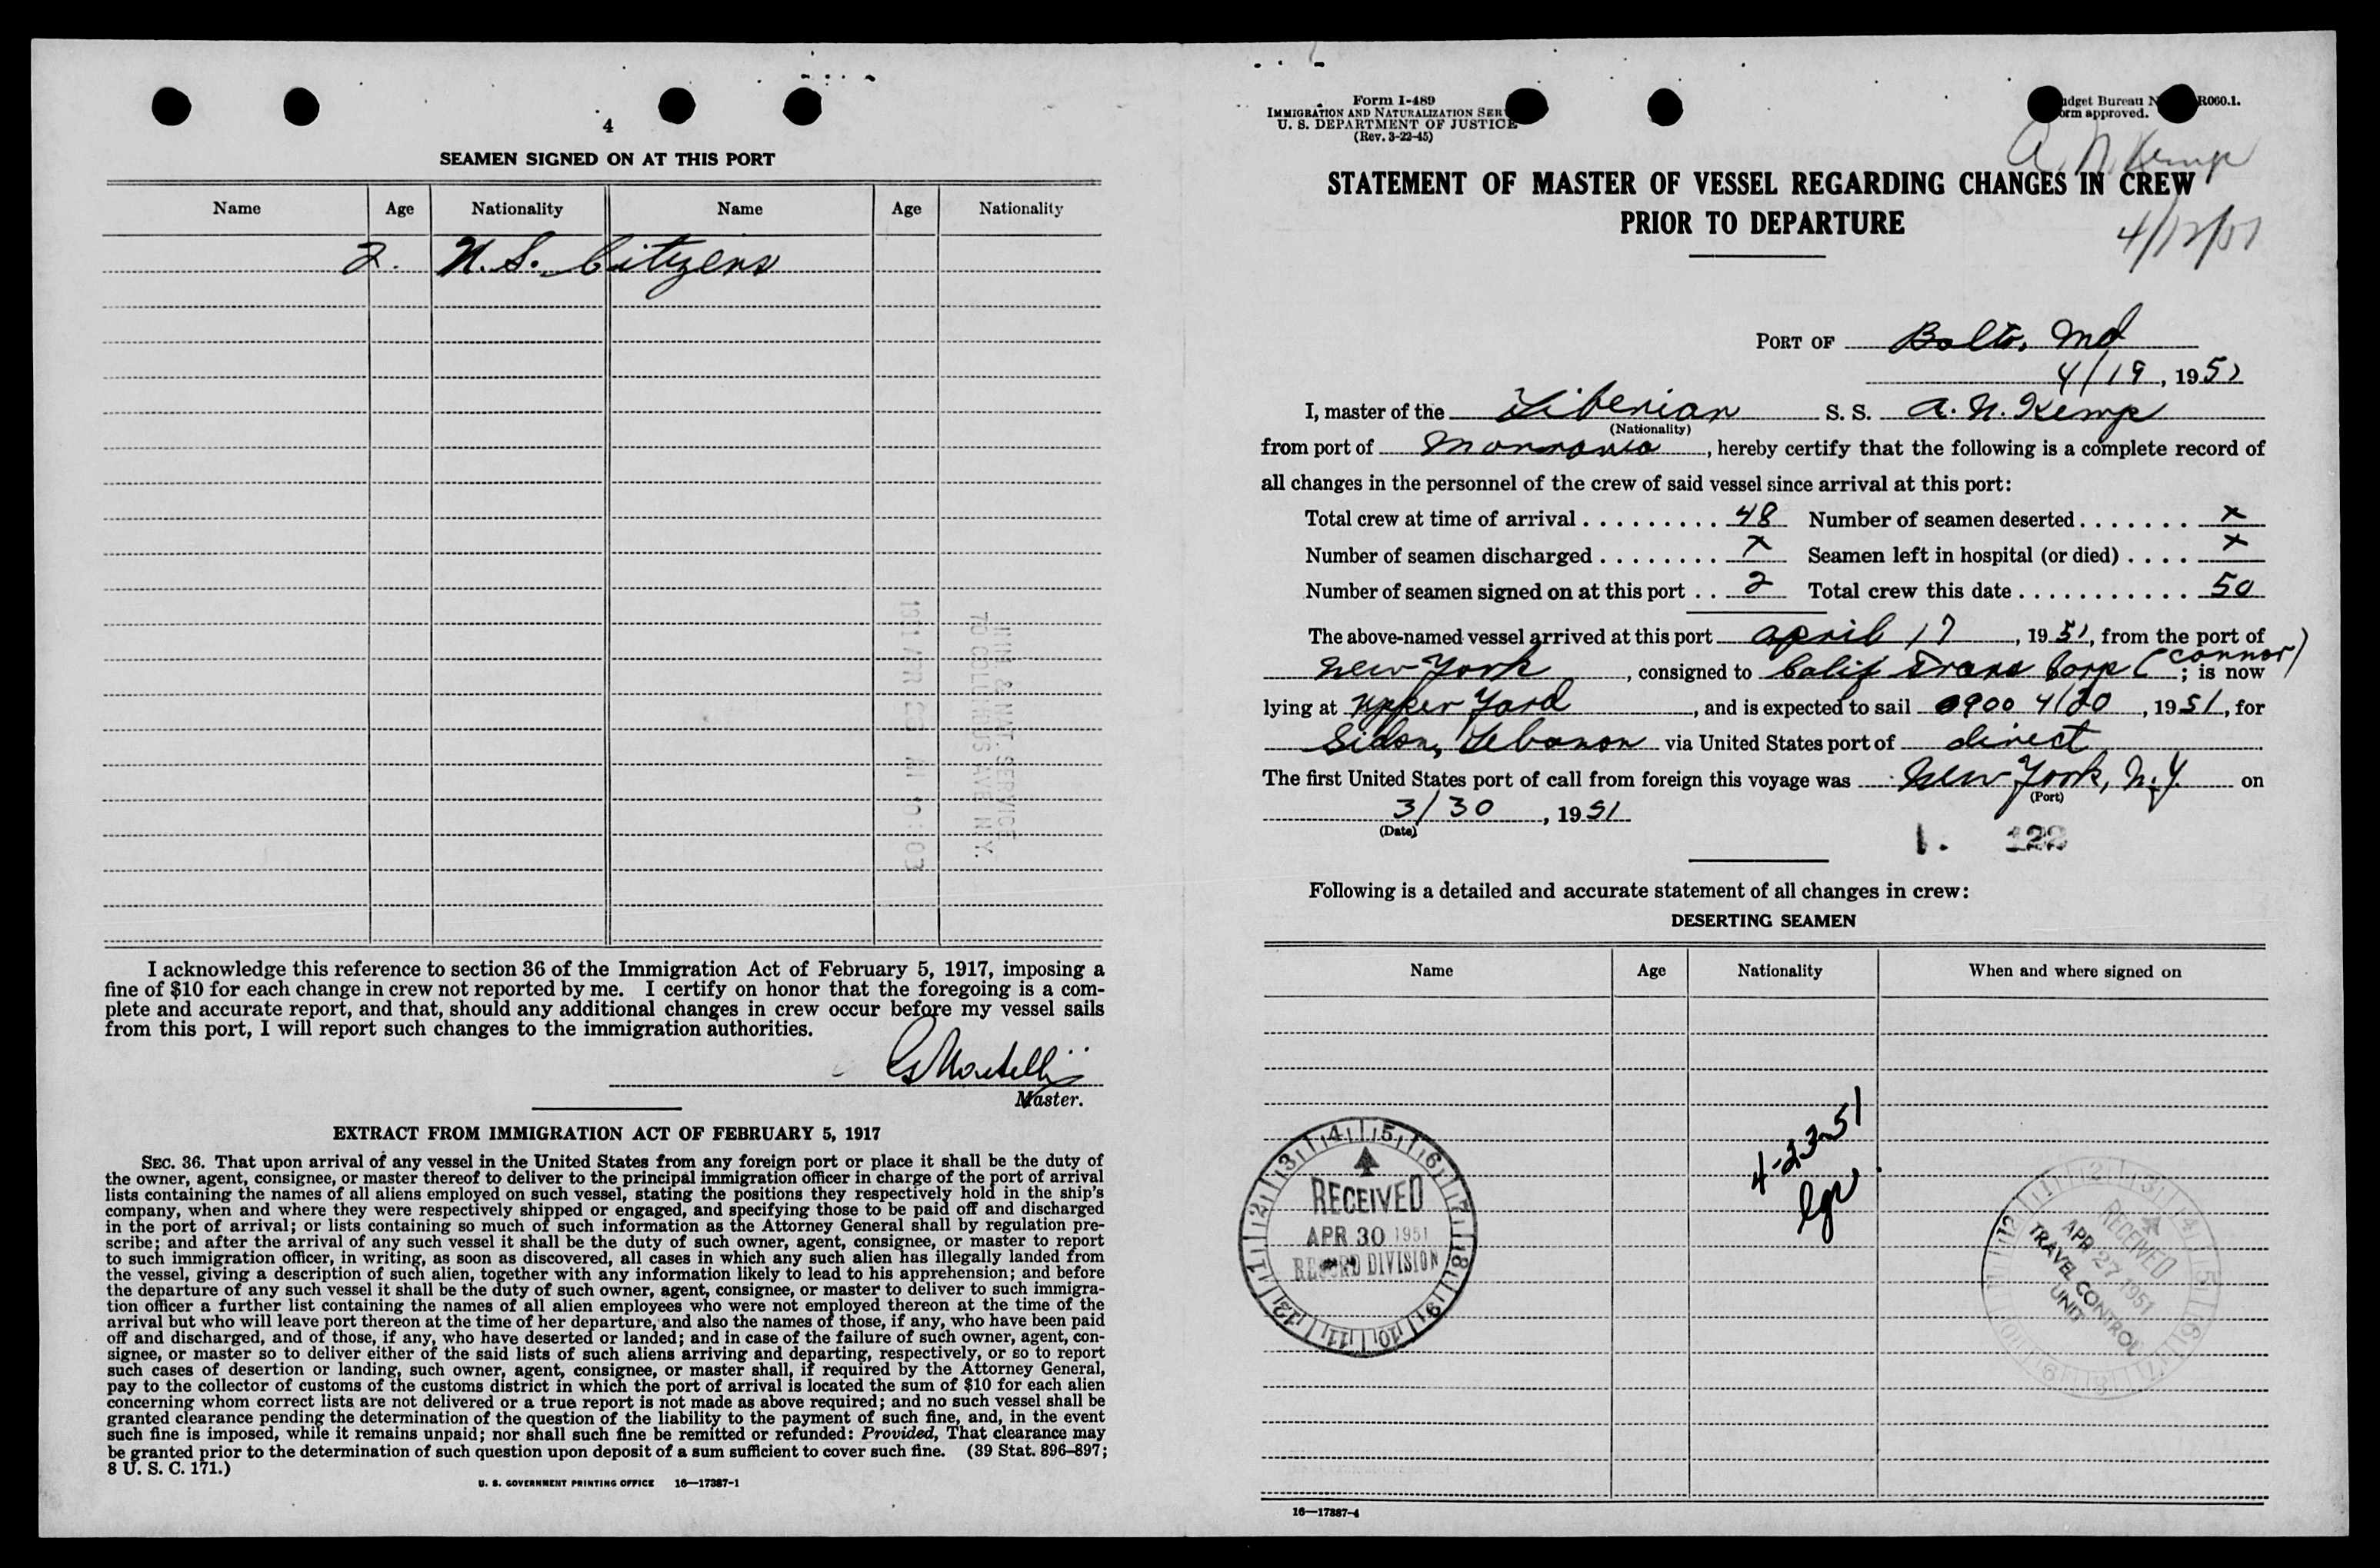 4
SEAMEN SIGNED ON AT THIS PORT
Name Age Nationality Name Age Nationality
2. U. S. Citizens
IMM. & NAT. SERVICE
70 COLUMBUS AVE. N.Y.
1951 APR 23 AM 10:03
I acknowledge this reference to section 36 of the Immigration Act of February 5, 1917, imposing a
fine of $10 for each change in crew not reported by me. I certify on honor that the foregoing is a com-
plete and accurate report, and that, should any additional changes in crew occur before my vessel sails
from this port, I will report such changes to the immigration authorities.
Master.
EXTRACT FROM IMMIGRATION ACT OF FEBRUARY 5, 1917
SEC. 36. That upon arrival of any vessel in the United States from any foreign port or place it shall be the duty of
the owner, agent, consignee, or master thereof to deliver to the principal immigration officer in charge of the port of arrival
lists containing the names of all aliens employed on such vessel, stating the positions they respectively hold in the ship's
company, when and where they were respectively shipped or engaged, and specifying those to be paid off and discharged
in the port of arrival; or lists containing so much of such information as the Attorney General shall by regulation pre-
scribe; and after the arrival of any such vessel it shall be the duty of such owner, agent, consignee, or master to report
to such immigration officer, in writing, as soon as discovered, all cases in which any such alien has illegally landed from
the vessel, giving a description of such alien, together with any information likely to lead to his apprehension; and before
the departure of any such vessel it shall be the duty of such owner, agent, consignee, or master to deliver to such immigra-
tion officer a further list containing the names of all alien employees who were not employed thereon at the time of the
arrival but who will leave port thereon at the time of her departure, and also the names of those, if any, who have been paid
off and discharged, and of those, if any, who have deserted or landed; and in case of the failure of such owner, agent, con-
signee, or master so to deliver either of the said lists of such aliens arriving and departing, respectively, or so to report
such cases of desertion or landing, such owner, agent, consignee, or master shall, if required by the Attorney General,
pay to the collector of customs of the customs district in which the port of arrival is located the sum of $10 for each alien
concerning whom correct lists are not delivered or a true report is not made as above required; and no such vessel shall be
granted clearance pending the determination of the question of the liability to the payment of such fine, and, in the event
such fine is imposed, while it remains unpaid; nor shall such fine be remitted or refunded: Provided, That clearance may
be granted prior to the determination of such question upon deposit of a sum sufficient to cover such fine. (39 Stat. 896–897;
8 U. S. C. 171.)
U. S. GOVERNMENT PRINTING OFFICE 16—17387-1
Form I-489
IMMIGRATION AND NATURALIZATION SER
U. S. DEPARTMENT OF JUSTICE
(Rev. 3-22-45)
dget Bureau N R060.1.
orm approved.
A. N. Kemp
STATEMENT OF MASTER OF VESSEL REGARDING CHANGES IN CREW
PRIOR TO DEPARTURE
PORT OF Balto, Md
4/19, 1951
I, master of the Liberian S. S. A. N. Kemp
(Nationality)
from port of Monrovia, hereby certify that the following is a complete record of
all changes in the personnel of the crew of said vessel since arrival at this port:
Total crew at time of arrival . . . . . . . . . 48 Number of seamen deserted . . . . . . . x
Number of seamen discharged . . . . . . . . x Seamen left in hospital (or died) . . . . x
Number of seamen signed on at this port . . 2 Total crew this date . . . . . . . . . . . 50
The above-named vessel arrived at this port April 17, 1951, from the port of
New York, consigned to Calif Trans Corp (Connor); is now
lying at Upper Yard, and is expected to sail 0900 4/20, 1951, for
Sidon, Lebanon via United States port of direct
The first United States port of call from foreign this voyage was New York, N.Y. on
(Port)
3/30, 1951
(Date)
1. 122
Following is a detailed and accurate statement of all changes in crew:
DESERTING SEAMEN
Name Age Nationality When and where signed on
4-23-51
RECEIVED
APR 30 1951
RECORD DIVISION
RECEIVED
APR 27 1951
TRAVEL CONTROL
UNIT
16—17387-4